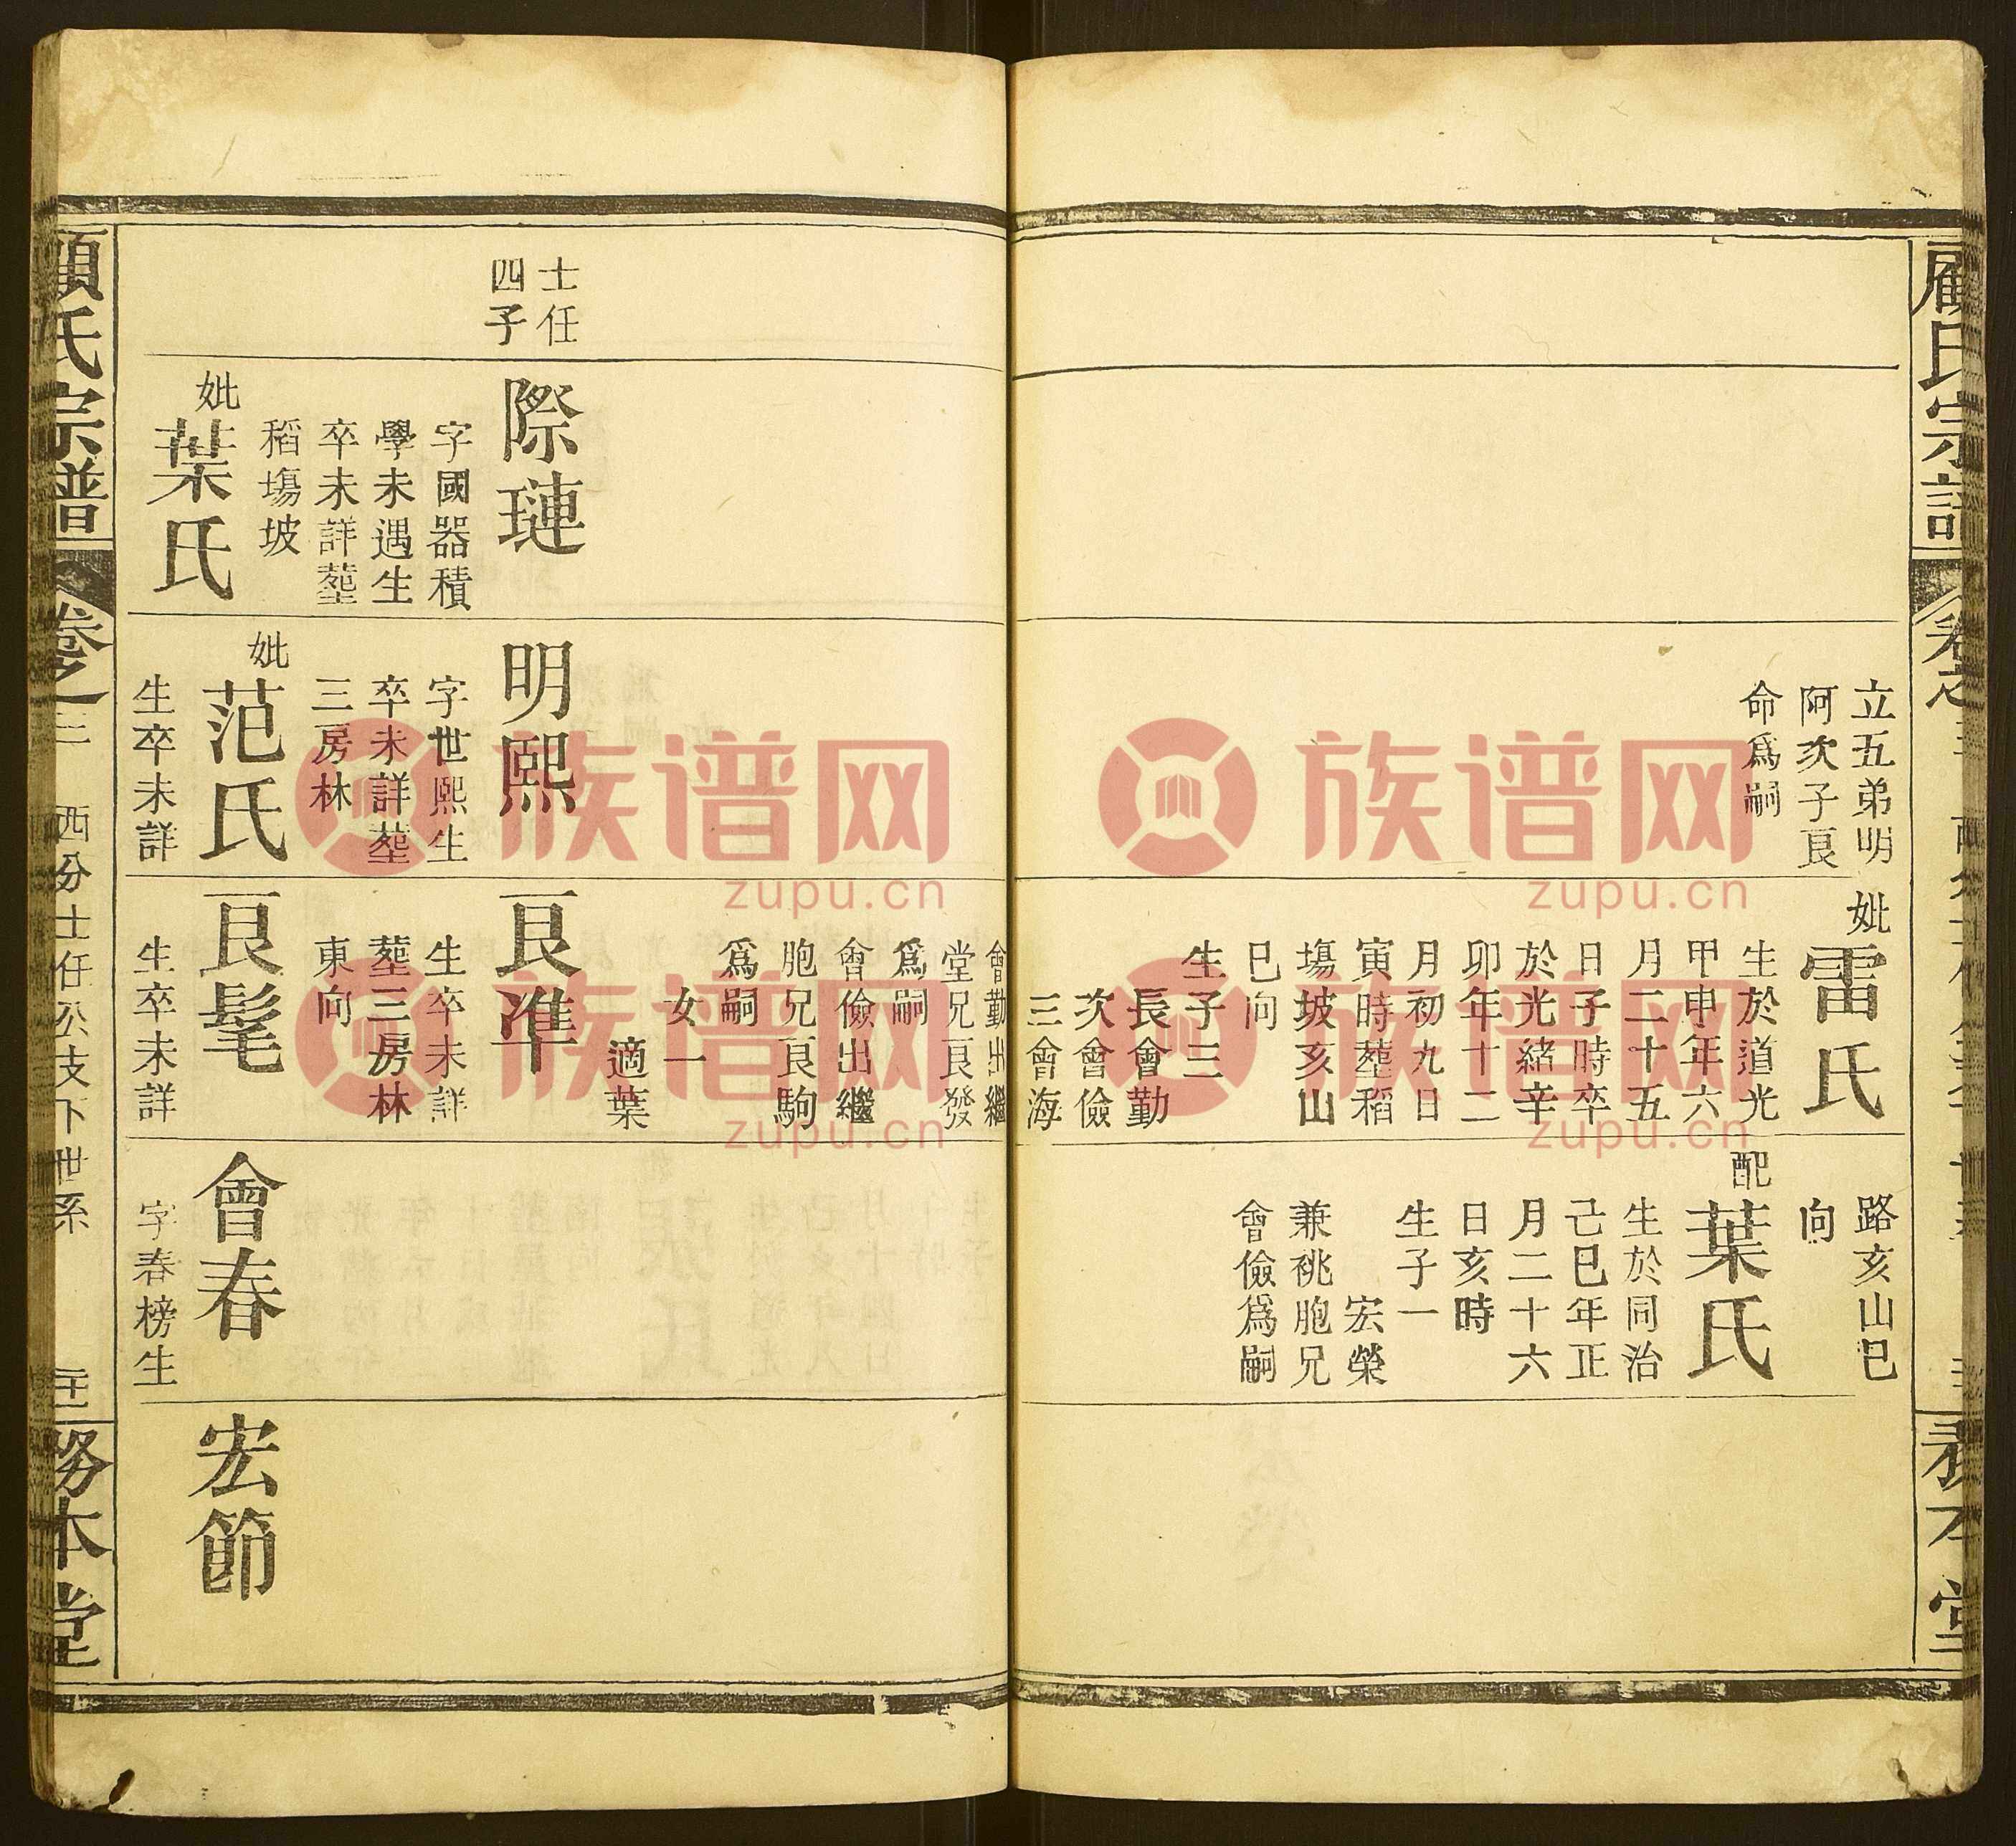 顧氏宗譜
卷之三
務本堂
立五弟明
阿次子良
命爲嗣
妣
雷氏
生於道光
甲申年六
月二十五
日子時卒
於光緒辛
卯年十二
月初九日
寅時塟稻
塲坡亥山
巳向
生子三
長會勤
次會儉
三會海
路亥山巳
向
配
葉氏
生於同治
己巳年正
月二十六
日亥時
生子一
宏榮
兼祧胞兄
會儉爲嗣
士任
四子
際璉
字國器積
學未遇生
卒未詳塟
稻塲坡
妣
葉氏
明熙
字世熙生
卒未詳塟
三房林
妣
范氏
生卒未詳
會勤出繼
堂兄良發
爲嗣
會儉出繼
胞兄良駒
爲嗣
女一
適葉
良準
生卒未詳
塟三房林
東向
良髦
生卒未詳
會春
字春榜生
宏節
顧氏宗譜
卷之三
西分士任公支下世系
務本堂
族谱网
zupu.cn
族谱网
zupu.cn
族谱网
zupu.cn
族谱网
zupu.cn